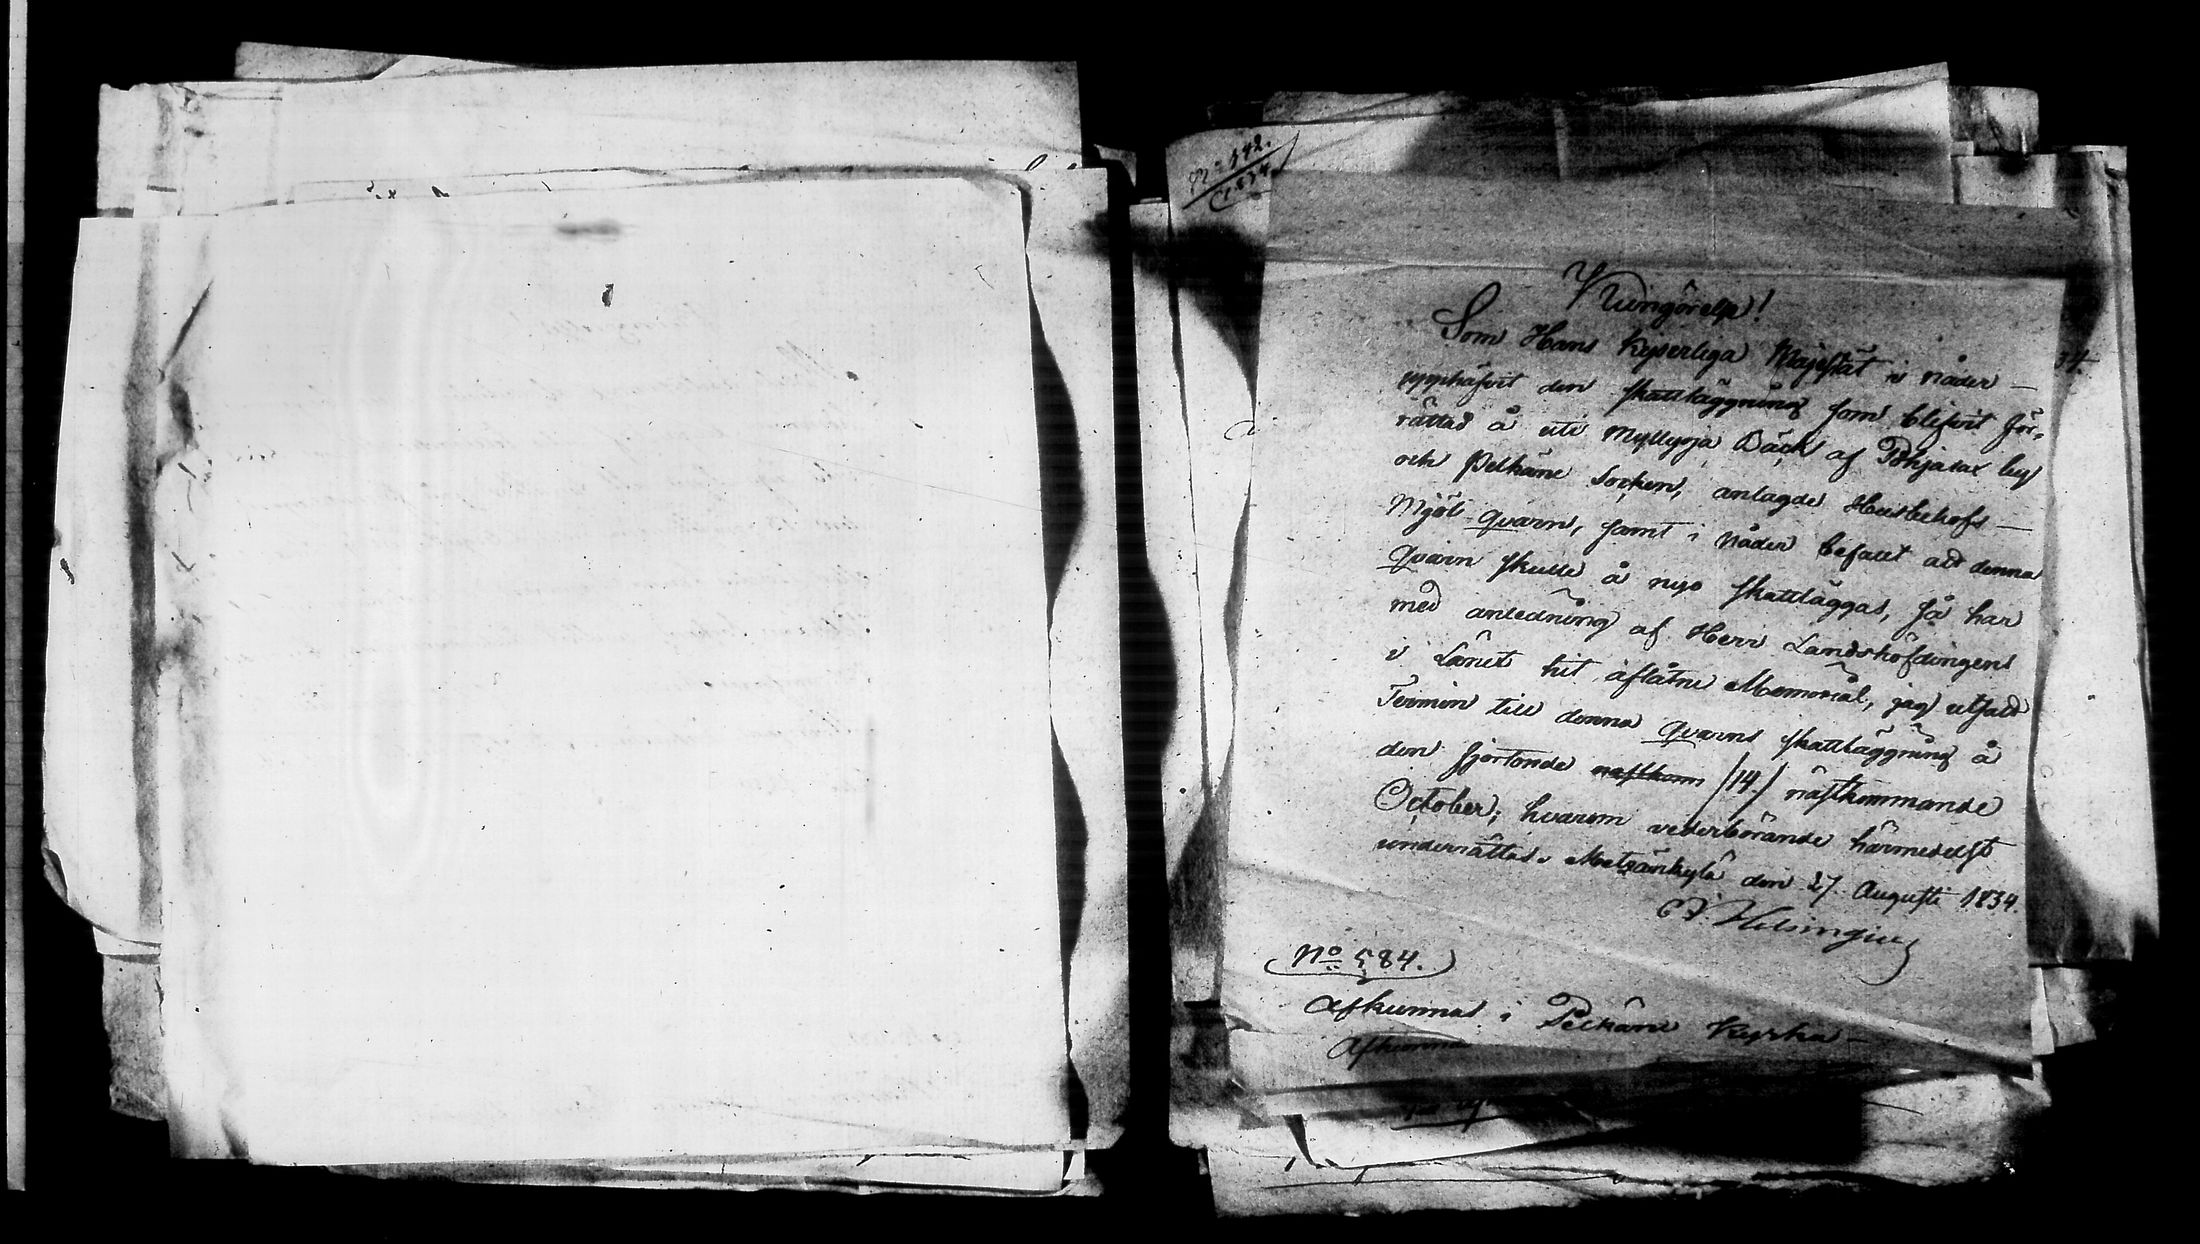 No 542.
1834.
Kungörelse!
Som Hans Kejserliga Majestät i nåder
upphäfvit den skattläggning som blifvit för-
rättad å uti Myllyoja Bäck af Pohjalax by
och Pelkäne Socken, anlagde Husbehofs
Mjöl qvarn, samt i Nåder befallt att denna
Qvarn skulle å nyo skattläggas, så har
med anledning af Herr Landshöfdingens
i Länet hit aflåtne Memorial, jag utsatt
Termin till denna Qvarns skattläggning å
den fjortonde nästkom /14/ nästkommande
October; hvarom vederbörande härmedelst
underrättas. Metzänkylä den 27 Augusti 1834.
Helsingius
No 584.
Afkunnas i Pelkäne Kyrka
Afkunna
34.